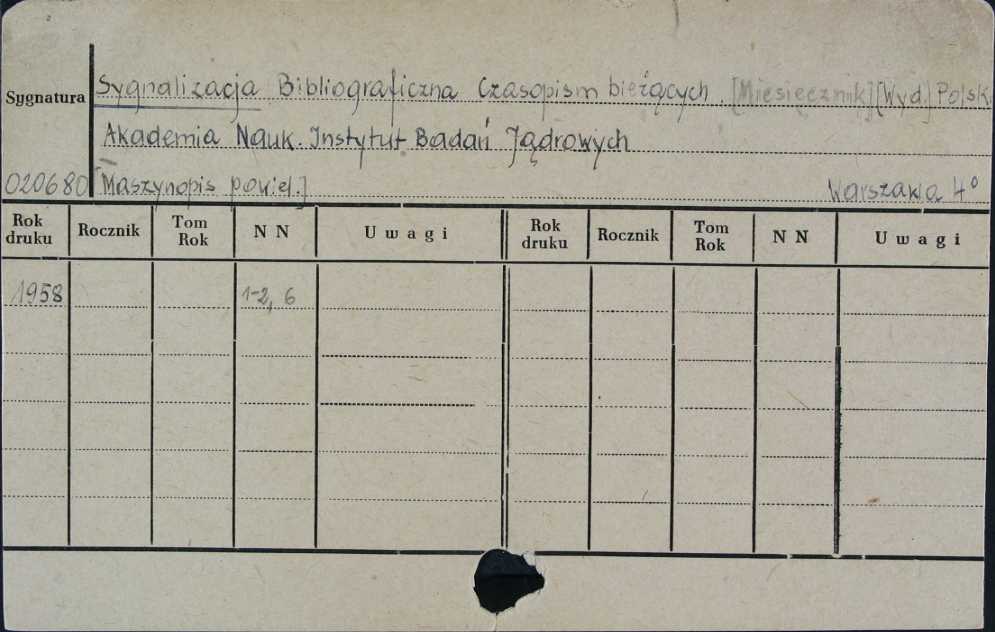 Sygnatura Sygnalizacja Bibliograficzna Czasopism bieżących. [Miesięcznik] [Wyd.] Polsk.
Akademia Nauk. Instytut Badań Jądrowych
020680 [Maszynopis powiel.] Warszawa 4°
Rok druku Rocznik Tom Rok NN Uwagi Rok druku Rocznik Tom Rok NN Uwagi
1958 1-2, 6